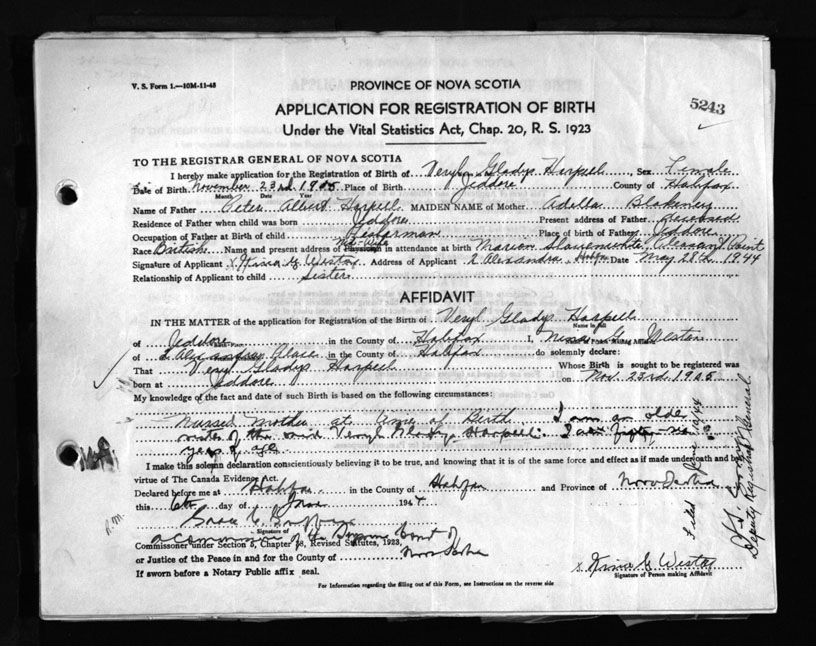 V. S. Form 1.—10M-11-43
PROVINCE OF NOVA SCOTIA
5243
APPLICATION FOR REGISTRATION OF BIRTH
Under the Vital Statistics Act, Chap. 20, R. S. 1923
TO THE REGISTRAR GENERAL OF NOVA SCOTIA
I hereby make application for the Registration of Birth of Veryl Gladys Harpell, Sex Female
Date of Birth November 23rd 1905 Place of Birth Jeddore County of Halifax
Month Date Year
Name of Father Peter Albert Harpell MAIDEN NAME of Mother Adella Blakeney
Residence of Father when child was born Jeddore Present address of Father deceased
Occupation of Father at Birth of child Fisherman Place of birth of Father Jeddore
Race British Name and present address of Physician Mid-Wife in attendance at birth Marion Pleasant Point
Signature of Applicant x Address of Applicant 2 Alexandra Date May 28th 1944
Relationship of Applicant to child Sister
AFFIDAVIT
IN THE MATTER of the application for Registration of the Birth of Veryl Gladys Harpell
Name in full
of Jeddore in the County of Halifax I, Weston
Name of Person making Affidavit
of 2 Alexandra Place in the County of Halifax do solemnly declare:
That Veryl Gladys Harpell Whose Birth is sought to be registered was
born at Jeddore on Nov. 23rd 1905
My knowledge of the fact and date of such Birth is based on the following circumstances:
Nursed Mother at time of Birth I am an older
sister of the said Veryl Gladys Harpell. I am fifty-six
years of age
I make this solemn declaration conscientiously believing it to be true, and knowing that it is of the same force and effect as if made under oath and by
virtue of The Canada Evidence Act.
Declared before me at Halifax in the County of Halifax and Province of Nova Scotia
this 6th day of June 1944
Signature of
A Commissioner of the Supreme Court of
Commissioner under Section 5, Chapter 38, Revised Statutes, 1923,
or Justice of the Peace in and for the County of Nova Scotia
If sworn before a Notary Public affix seal.
x Weston
Signature of Person making Affidavit
For Information regarding the filling out of this Form, see Instructions on the reverse side
Filed June 12/44
Deputy Registrar General.